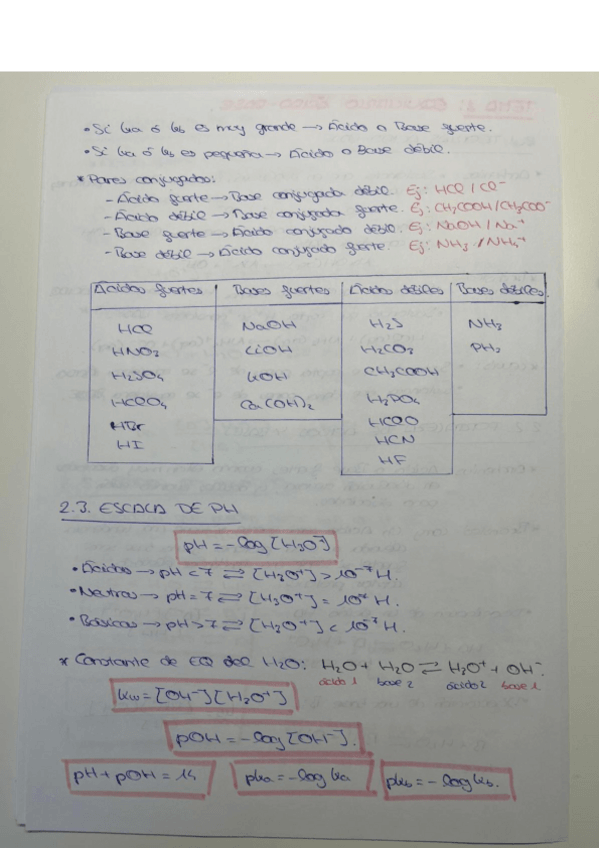 • Si Ka ó Kb es muy grande → Ácido o Base fuerte.
• Si Ka ó Kb es pequeña → Ácido o Base débil.
* Pares conjugados:
- Ácido fuerte → Base conjugada débil. Ej: HCl / Cl⁻
- Ácido débil → Base conjugada fuerte. Ej: CH₃COOH/CH₃COO⁻
- Base fuerte → Ácido conjugado débil. Ej: NaOH / Na⁺
- Base débil → Ácido conjugado fuerte. Ej: NH₃ / NH₄⁺
Ácidos fuertes Bases fuertes Ácidos débiles Bases débiles
HCl NaOH H₂S NH₃
HNO₃ LiOH H₂CO₃ PH₃
H₂SO₄ KOH CH₃COOH
HClO₄ Ca(OH)₂ H₃PO₄
HBr HClO
HI HCN
HF
2.3. ESCALA DE PH
pH = -log [H₃O⁺]
• Ácidos → pH < 7 ⇄ [H₃O⁺] > 10⁻⁷ M.
• Neutros → pH = 7 ⇄ [H₃O⁺] = 10⁻⁷ M.
• Básicos → pH > 7 ⇄ [H₃O⁺] < 10⁻⁷ M.
* Constante de EQ del H₂O: H₂O + H₂O ⇄ H₃O⁺ + OH⁻.
ácido 1 base 2 ácido 2 base 1
Kw = [OH⁻] [H₃O⁺]
pOH = -log [OH⁻].
pH + pOH = 14 pKa = -log Ka pKb = -log Kb.